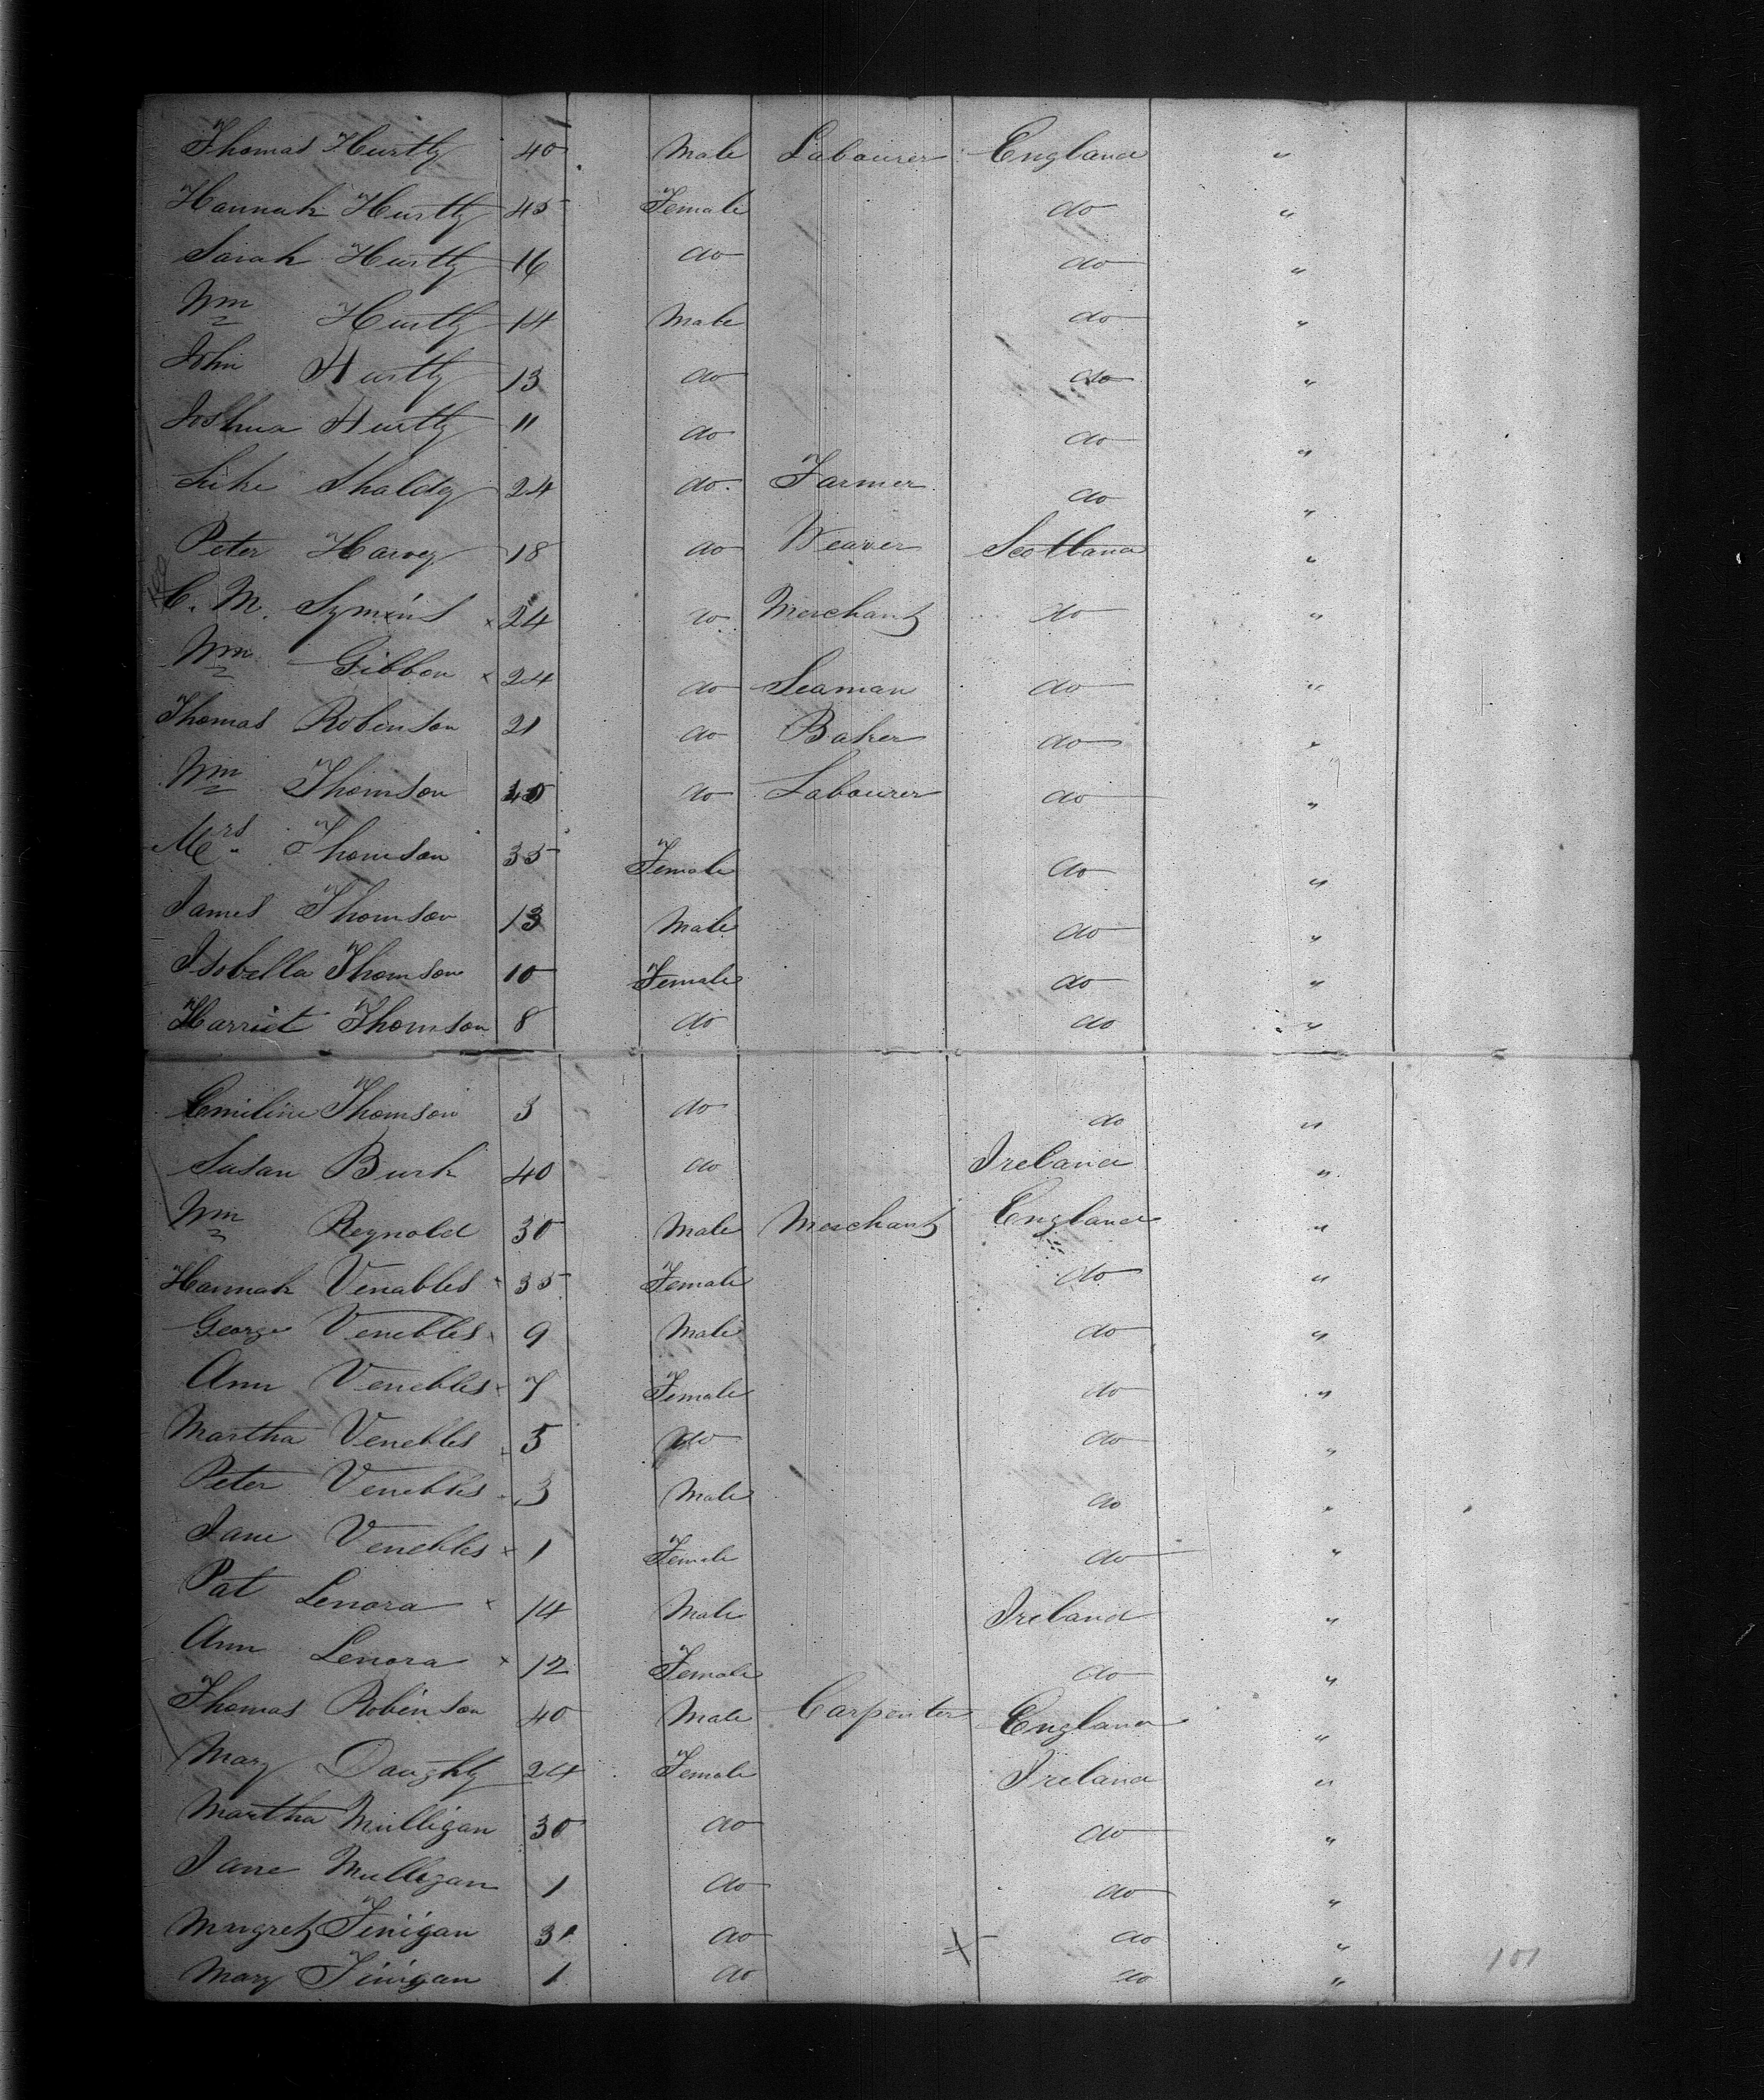 Thomas Hurtly 40 Male Labourer England "
Hannah Hurtly 45 Female do "
Sarah Hurtly 16 do do "
Wm Hurtly 14 Male do "
John Hurtly 13 do do "
Joshua Hurtly 11 do do "
Luke Shaldy 24 do Farmer do "
Peter Harvey 18 do Weaver Scotland "
C. M. Symins x 24 do Merchant do "
Wm Gibbon x 24 do Seaman do "
Thomas Robinson 21 do Baker do "
Wm Thomson do Labourer do "
Mrs. Thomson 35 Female do "
James Thomson 13 Male do "
Isobella Thomson 10 Female do "
Harriet Thomson 8 do do "
Emiline Thomson 3 do do "
Susan Burk 40 do Ireland "
Wm Reynold 30 Male Merchant England "
Hannah Venables x 35 Female do "
George Venebles x 9 Male do "
Ann Venebles x 7 Female do "
Martha Venebles x 5 do do "
Peter Venebles x 3 Male do "
Jane Venebles x 1 Female do "
Pat Lenora x 14 Male Ireland "
Ann Lenora x 12 Female do "
Thomas Robinson 40 Male Carpenter England "
Mary Daughty 24 Female Ireland "
Martha Mulligan 30 do do "
Jane Mulligan 1 do do "
Margret Finigan 31 do do "
Mary Finigan 1 do do "
101